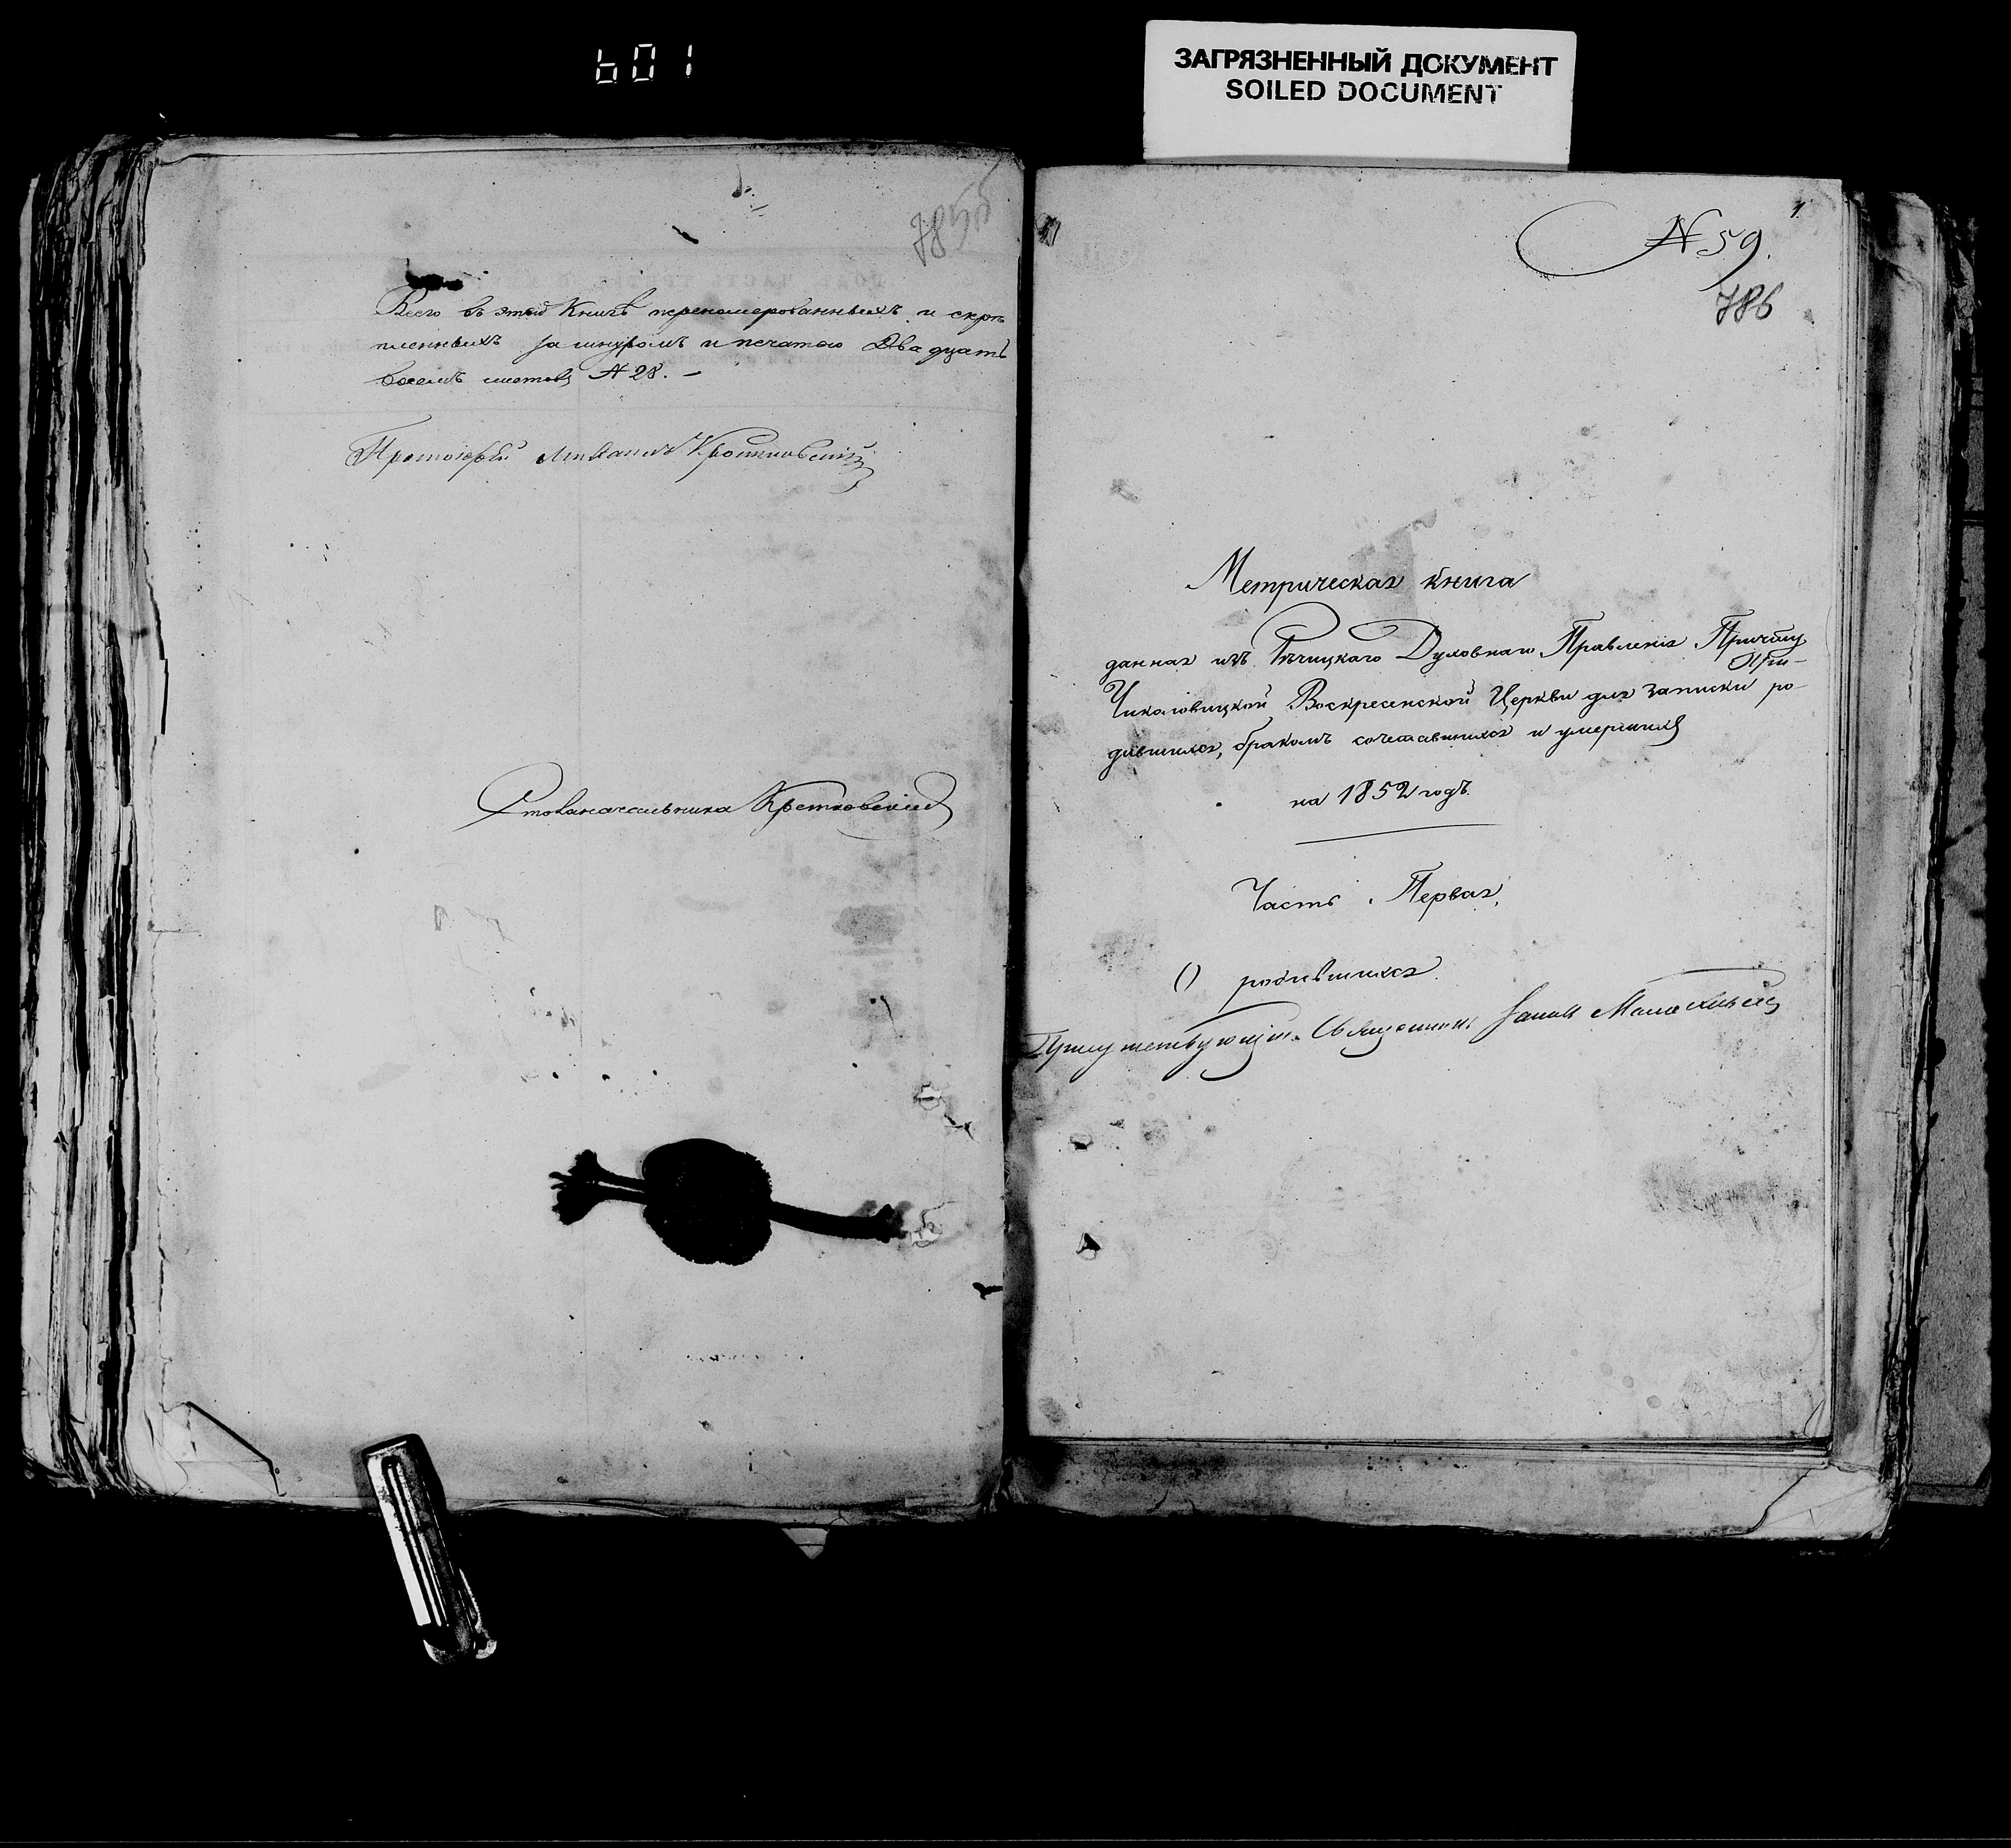 601
ЗАГРЯЗНЕННЫЙ ДОКУМЕНТ
SOILED DOCUMENT
785об
Всего въ этой Книгѣ перенумерованныхъ и скрѣ
пленныхъ за шнуромъ и печатью Двадцать
восемь листовъ № 28. –
Протоіерей
Столоначальника
1
№ 59.
786
Метрическая книга
данная изъ Рѣчицкаго Духовнаго Правленія Причту
При-
Чикаловицкой Воскресенской Церкви для записки ро-
дившихся, бракомъ сочетавшихся и умершихъ
на 1852 годъ.
Часть Первая.
О родившихся
Присутствующій Священникъ